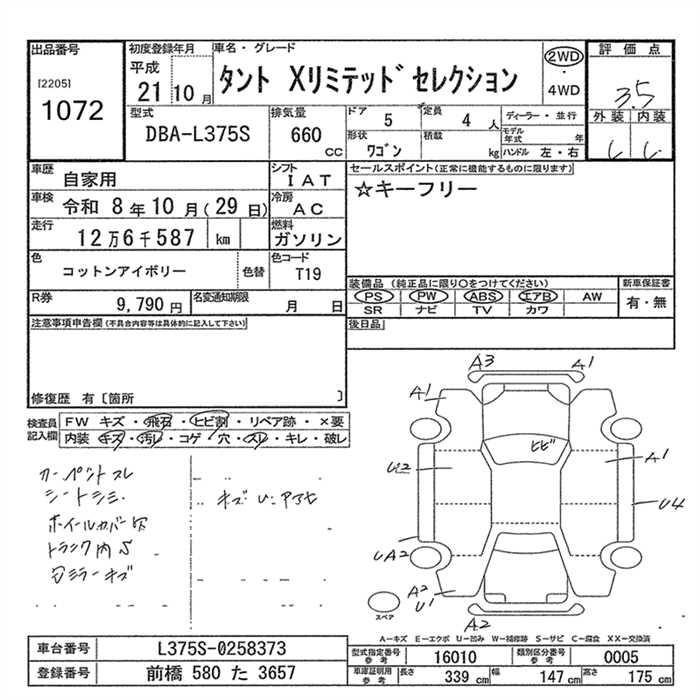 出品番号
[2205]
1072
初度登録年月
平成
21 10 月
車名・グレード
タント Xリミテッド セレクション
2WD
・
4WD
評価点
3.5
外装 内装
型式
DBA-L375S
排気量
660
CC
ドア 5
定員 4 人
形状
ワゴン
積載
kg
ディーラー・並行
モデル
年式 年
ハンドル 左・右
車歴
自家用
シフト
IAT
車検 令和 8 年 10 月 ( 29 日)
冷房
AC
走行
12 万 6 千 587 km
燃料
ガソリン
色
コットンアイボリー
色替
色コード
T19
R券 9,790 円
名変通知期限 月 日
セールスポイント(正常に機能するものに限ります)
☆キーフリー
装備品 (純正品に限り○をつけてください)
PS PW ABS エアB AW
SR ナビ TV カワ
新車保証書
有・無
後日品
注意事項申告欄 (不具合内容等は具体的に記入して下さい)
修復歴 有 〔箇所 〕
検査員
記入欄
FW キズ ・ 飛石 ・ ヒビ割 ・ リペア跡 ・ ×要
内装 キズ ・ 汚レ ・ コゲ ・ 穴 ・ スレ ・ キレ ・ 破レ
カーペットスレ
シートシミ
ホイールカバーキズ
トランク内S
ミラーキズ
キズ U
A3
A1
A1
ヒビ
A1
U2
U4
UA2
A2
U1
A2
スペア
A-キズ E-エクボ U-凹み W-補修跡 S-サビ C-腐食 XX-交換済
車台番号 L375S-0258373
登録番号 前橋 580 た 3657
型式指定番号
参考
16010
類別区分番号
参考
0005
車庫証明用
参考
長さ 339 cm 幅 147 cm 高さ 175 cm